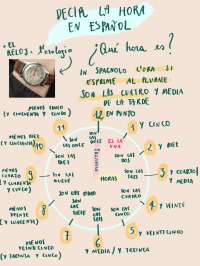 DECIR LA HORA
EN ESPAÑOL
• EL
RELOJ: L'orologio
¿Qué hora es?
IN SPAGNOLO L'ORA SI
ESPRIME AL PLURALE
SON LAS CUATRO Y MEDIA
DE LA TARDE
12 EN PUNTO
SON LAS
DOCE
1 Y CINCO
ES LA
UNA
2 Y DIEZ
SON LAS
DOS
3 Y CUARTO/
MEDIA
SON LAS
TRES
4 Y VEINTE
SON LAS
CUATRO
5 Y VEINTICINCO
SON LAS
CINCO
6 Y MEDIA / Y TREINTA
SON
LAS
SEIS
7 MENOS
VEINTICINCO
(Y TREINTA Y CINCO)
8 MENOS
VEINTE
(Y CUARENTA)
SON LAS OCHO
9 MENOS
CUARTO
(Y CUARENTA
Y CINCO)
SON
LAS NUEVE
10 MENOS DIEZ
(Y CINCUENTA)
SON LAS
DIEZ
11 MENOS CINCO
(Y CINCUENTA Y CINCO)
SON LAS
ONCE
HORAS